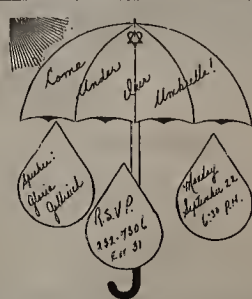 Come Under Our Umbrella!
Speaker:
Gloria
R.S.V.P.
232-7306
Ext 31
Monday
September 22
6:30 P.M.